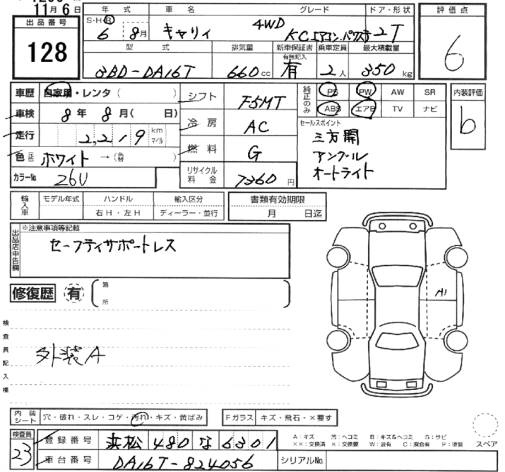 11月6日
出品番号
128
年式 車名 グレード ドア・形状
S・H・R
6年 8月 キャリィ 4WD KCエアコン・パワステ 2T
評価点
6
型式 排気量 新車保証書 乗車定員 最大積載量
3BD-DA16T 660cc 有 2人 350kg
車歴 自家用・レンタ( )
シフト F5MT
純正のみ PS PW AW SR
ABS エアB TV ナビ
内装評価
b
車検 8年 8月( 日)
冷房 AC
セールスポイント
三方開
アングル
オートライト
走行 2,219 km マイル
燃料 G
色 ホワイト → (替)
カラーNo 26U
リサイクル料金 7360円
輸入車 モデル年式 ハンドル 輸入区分 書類有効期限
右H・左H ディーラー・並行 月 日迄
出品店申告欄
※注意事項等記載
セーフティサポートレス
修復歴 有 箇所
A1
検査員記入欄
外装A
内装シート 穴・破れ・スレ・コゲ・汚れ・キズ・黄ばみ
Fガラス キズ・飛石・×要す
検査員
23
登録番号 浜松 480 な 6301
車台番号 DA16T-824056
シリアルNo
A:キズ U:ヘコミ B:キズ&ヘコミ S:サビ
スペア